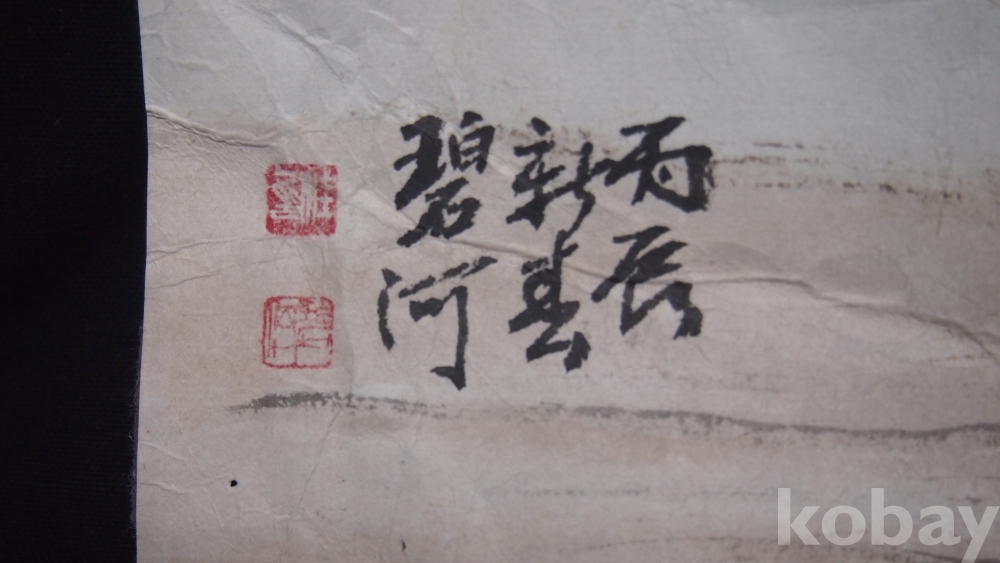 丙辰
新春
碧河
kobay